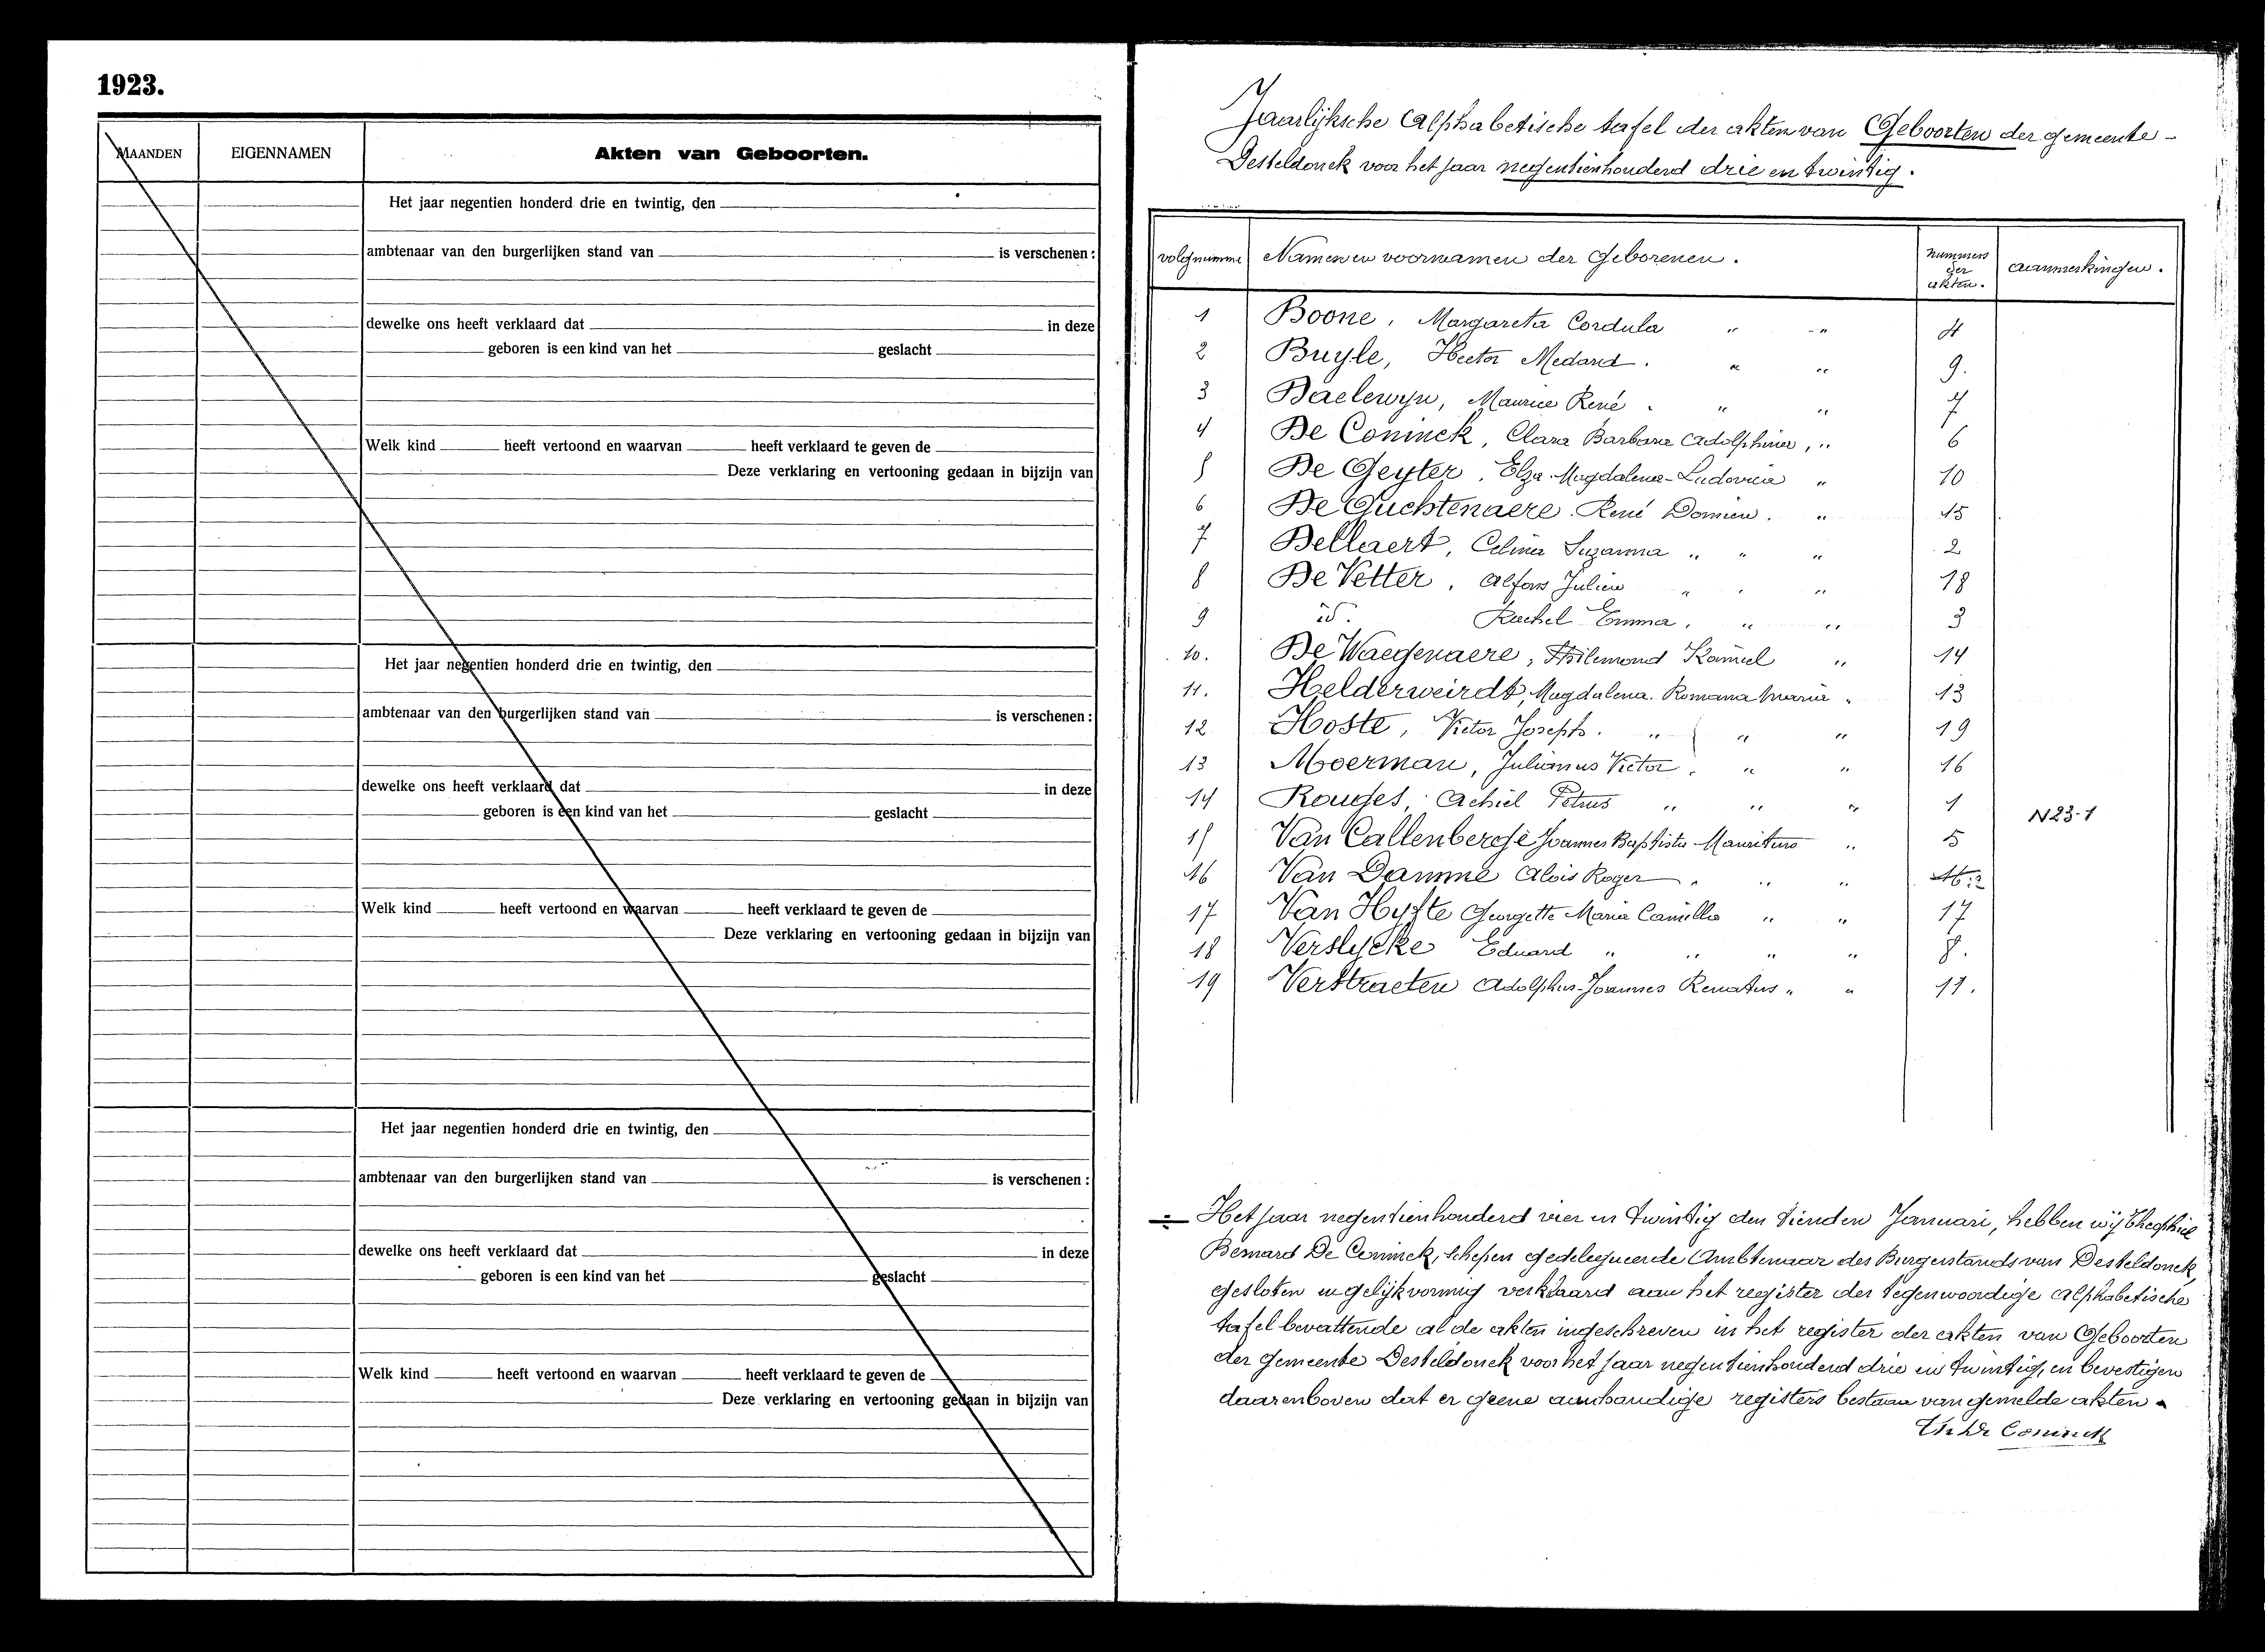 1923.
MAANDEN EIGENNAMEN Akten van Geboorten.
Het jaar negentien honderd drie en twintig, den
ambtenaar van den burgerlijken stand van is verschenen :
dewelke ons heeft verklaard dat in deze
geboren is een kind van het geslacht
Welk kind heeft vertoond en waarvan heeft verklaard te geven de
Deze verklaring en vertooning gedaan in bijzijn van
Het jaar negentien honderd drie en twintig, den
ambtenaar van den burgerlijken stand van is verschenen :
dewelke ons heeft verklaard dat in deze
geboren is een kind van het geslacht
Welk kind heeft vertoond en waarvan heeft verklaard te geven de
Deze verklaring en vertooning gedaan in bijzijn van
Het jaar negentien honderd drie en twintig, den
ambtenaar van den burgerlijken stand van is verschenen :
dewelke ons heeft verklaard dat in deze
geboren is een kind van het geslacht
Welk kind heeft vertoond en waarvan heeft verklaard te geven de
Deze verklaring en vertooning gedaan in bijzijn van
Jaarlijksche Alphabetische tafel der akten van Geboorten der gemeente -
Desteldonck voor het jaar negentienhonderd drie en twintig.
volgnummer Namen en voornamen der Geborenen. nummers der akten. aanmerkingen.
1 Boone, Margareta Cordula " " 4
2 Buyle, Hector Medard. " " 9.
3 Baelewyn, Maurice René. " " 7
4 De Coninck, Clara Barbara Adolphina, " 6
5 De Geyter. Elza-Magdalena-Ludovica " 10
6 De Guchtenaere. René Damien. " 15
7 Dellaert, Celina Suzanna " " " 2
8 De Vetter, Alfons Julien " " " 18
9 id. Rachel Emma, " " 3
10. De Waegenaere, Philemond Kamiel " 14
11. Helderweirdt, Magdalena. Romana Maria " 13
12 Hoste, Victor Joseph. " " " 19
13 Moerman, Julianus Victor. " " 16
14 Rouges, Achiel Petrus " " " 1 N23-1
15 Van Callenberge Joannes Baptista Mauritius " 5
16 Van Damme Alois Roger " " "
17 Van Hyfte Georgette Maria Camilla " " 17
18 Verslycke Eduard " " " " 8.
19 Verstraeten Adolphus-Joannes Renatus " " 11.
Het jaar negentienhonderd vier en twintig den tienden Januari, hebben wij Theophiel
Bernard De Coninck, Schepen gedelegueerde Ambtenaar des Burgerstands van Desteldonck,
gesloten en gelijkvormig verklaard aan het register der tegenwoordige alphabetische
tafel bevattende al de akten ingeschreven in het register der akten van Geboorten
der gemeente Desteldonck voor het jaar negentienhonderd drie en twintig, en bevestigen
daarenboven dat er geene aanhoudige registers bestaan van gemelde akten.
Th De Coninck